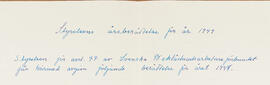 Styrelsens årsberättelse för år 1949
Styrelsen för avd. 49 av Svenska
får härmed avgiva följande berättelse för året 1949.